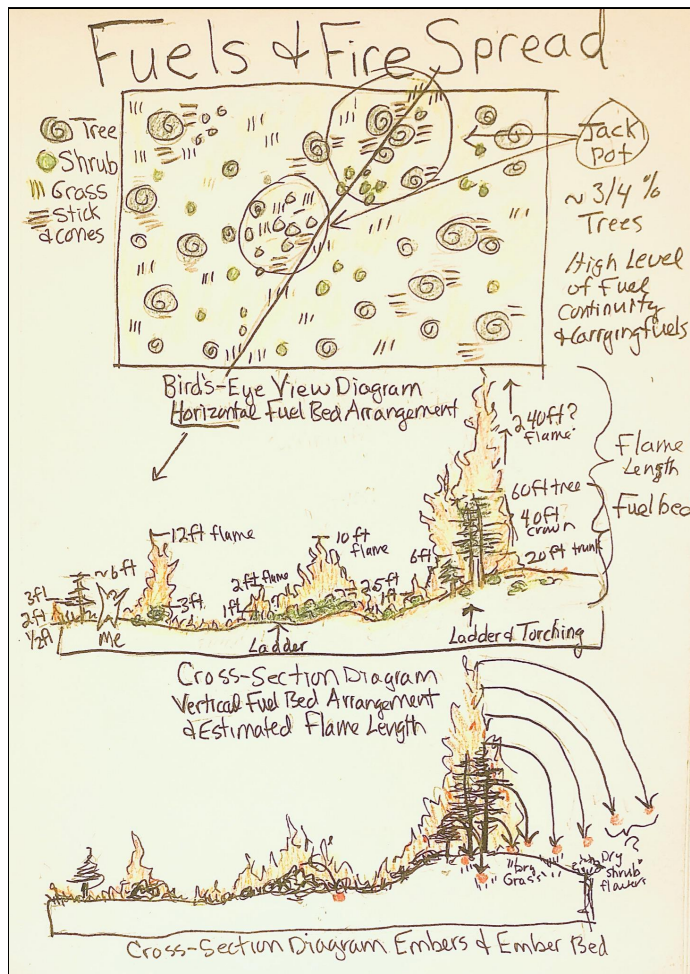 Fuels & Fire Spread
Tree
Shrub
Grass
Stick
& cones
Jack
Pot
~ 3/4 %
Trees
High Level
of Fuel
Continuity
& Carrying fuels
Bird's-Eye View Diagram
Horizontal Fuel Bed Arrangement
240ft?
flame
Flame
Length
60ft tree
Fuel bed
40ft
crown
20ft trunk
12ft flame
10ft
flame
6ft
~6ft
2ft flame
2.5ft
3ft
3ft
1ft
1ft
2ft
1/2ft
Me
Ladder
Ladder & Torching
Cross-Section Diagram
Vertical Fuel Bed Arrangement
& Estimated Flame Length
?
Dry
Grass
Dry
shrub
flowers
Cross-Section Diagram Embers & Ember Bed